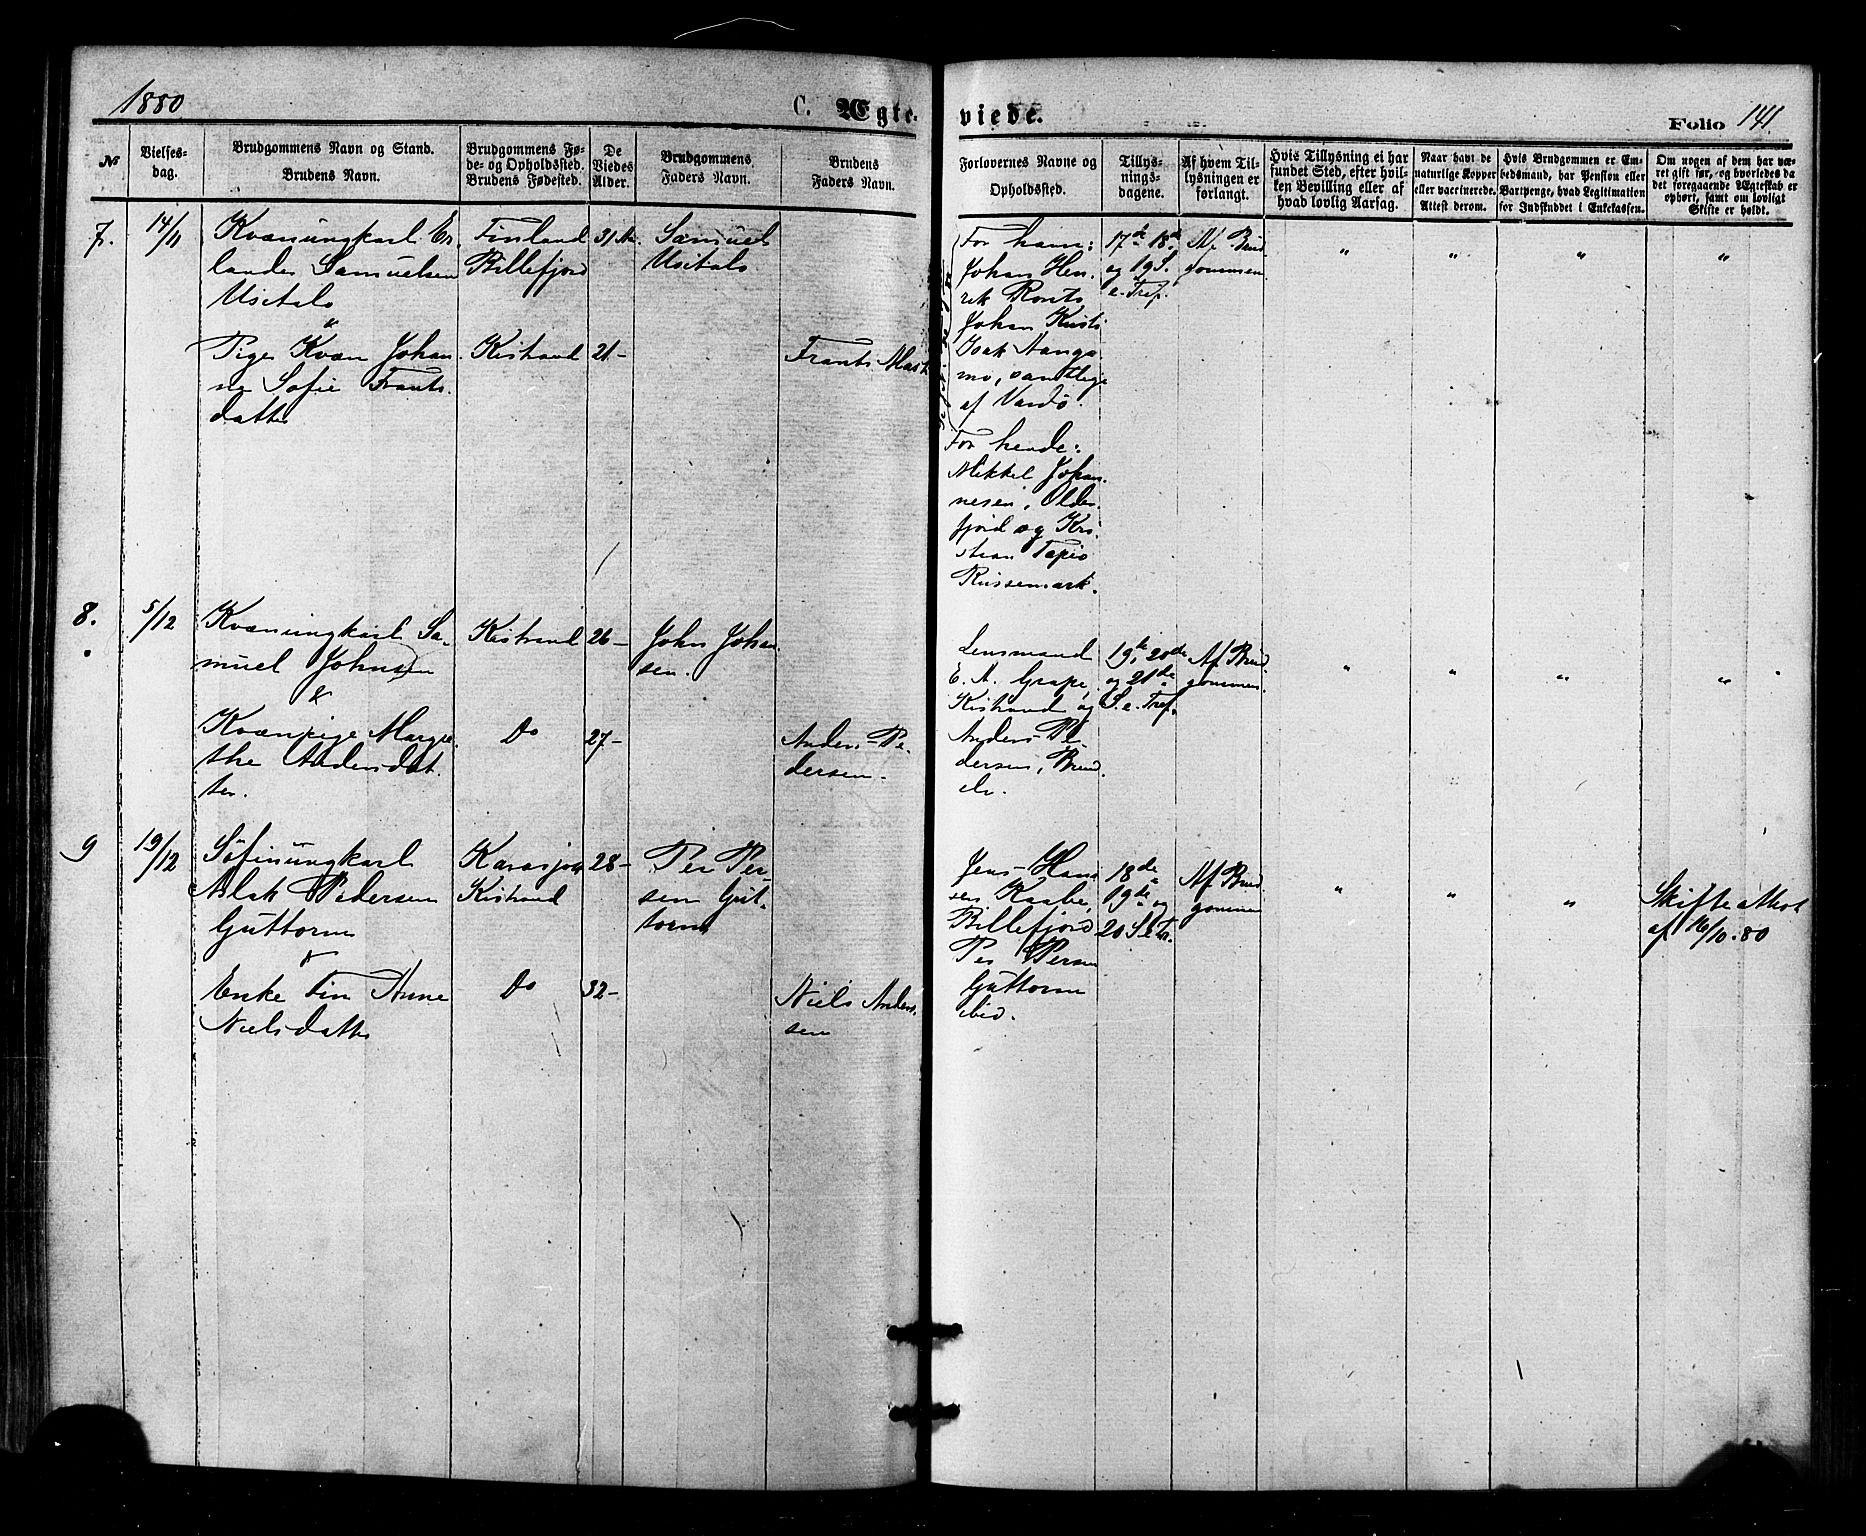 1880
C. Ægte-
viede.
Folio 141.
№
Vielses-
dag.
Brudgommens Navn og Stand.
Brudens Navn.
Brudgommens Fø-
de- og Opholdssted.
Brudens Fødested.
De
Viedes
Alder.
Brudgommens
Faders Navn.
Brudens
Faders Navn.
Forlovernes Navne og
Opholdssted.
Tillys-
nings-
dagene.
Af hvem Til-
lysningen er
forlangt.
Hvis Tillysning ei har
fundet Sted, efter hvil-
ken Bevilling eller af
hvad lovlig Aarsag.
Naar havt de
naturlige Kopper
eller vaccinerede.
Attest derom.
Hvis Brudgommen er Em-
bedsmand, har Pension eller
Vartpenge, hvad Legitimation
for Indskuddet i Enkekassen.
Om nogen af dem har væ-
ret gift før, og hvorledes da
det foregaaende Ægteskab er
ophørt, samt om lovligt
Skifte er holdt.
7.
14/11
Kvænungkarl Er-
landes Samuelsen
Usitalo
&
Pige Kvæn Johan-
ne Sofie Frants-
datter
Finland
Billefjord
Kistrand
31
21-
Samuel
Usitalo
Frants
For ham:
Johan Hen-
rik
Johan
Isak Aanga-
mo, samtlige
af Vardø.
For hende:
Mikkel Johan-
nesen, Older-
fjord og Kri-
stian Tapio
Russemark.
17de 18de
og 19 S.
e. Tref.
Af Brud
gommen
" " " "
8.
5/12
Kvænungkarl Sa-
muel Johnsen
&
Kvænpige Margre-
the Andersdat-
ter.
Kistrand
Do
26-
27-
John Johan
sen.
Anders Pe-
dersen.
Lensmand
E. A. Grape,
Kistrand og
Anders Pe-
dersen,
19de, 20de
og 21de
S. e. Tref.
Af Brud
gommen.
" " " "
9
19/12
Søfinungkarl
Aslak Pedersen
Guttorm
&
Enke Fin Anne
Nielsdatter
Karasjok
Kistrand
Do
28-
32-
Per Per-
sen Gut-
torm
Niels Ander-
sen
Jens Han
sen Kaabe,
Billefjord
Per Persen
Guttorm
ibid.
18de
19de og
20 S e Tr.
Af Brud
gommen
" " "
Skifteattest
af 16/10.80